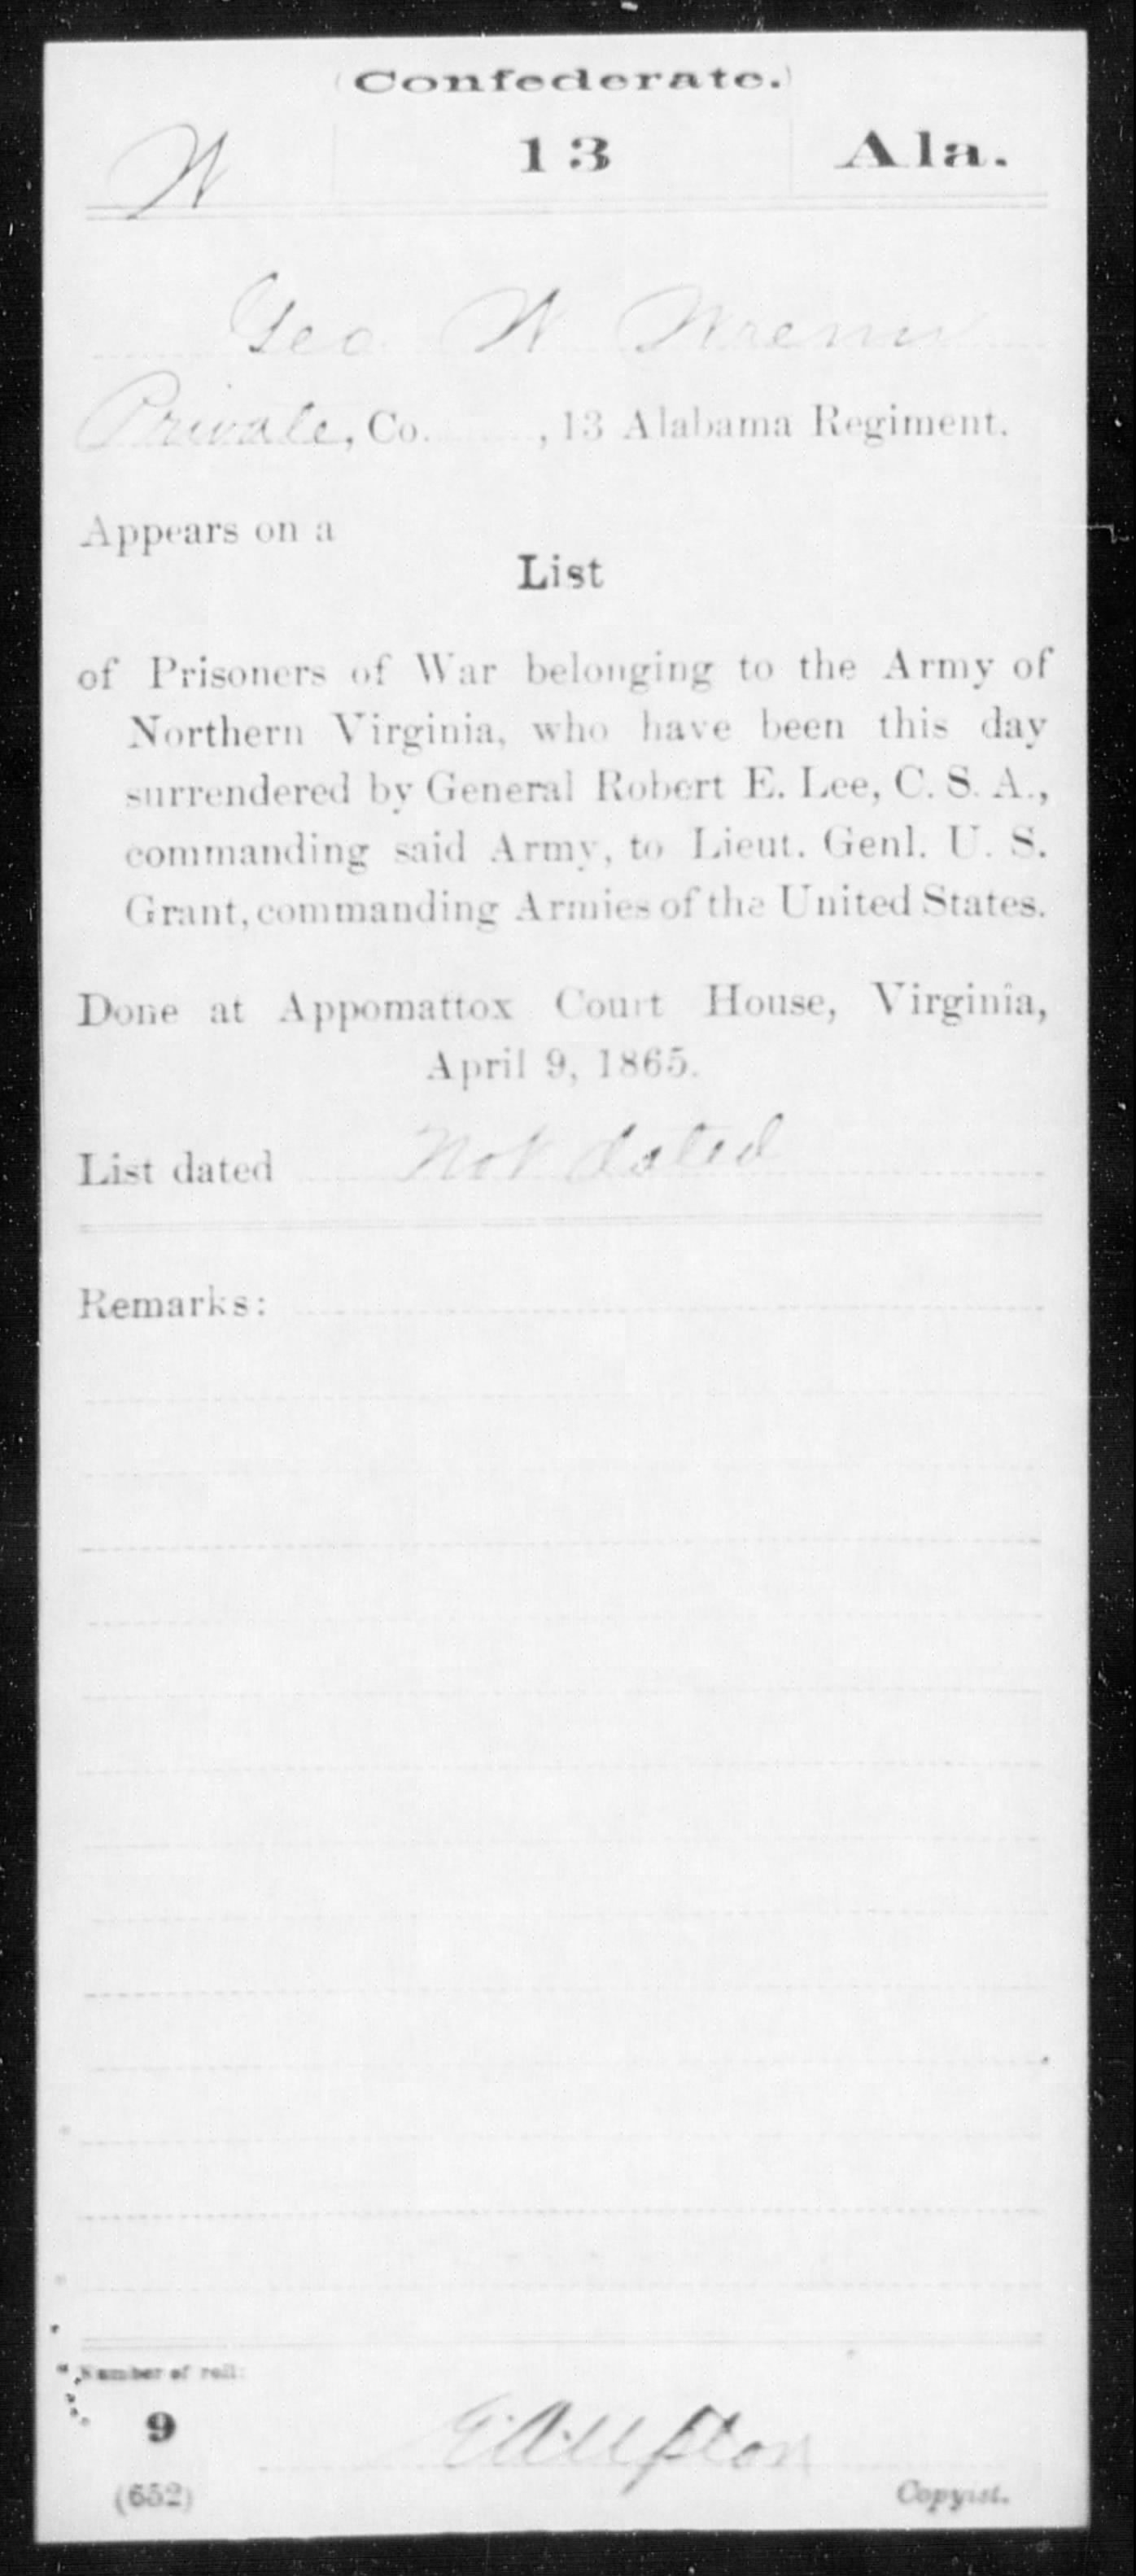 (Confederate.)
W 13 Ala.
Geo W
Private, Co. , 13 Alabama Regiment.
Appears on a
List
of Prisoners of War belonging to the Army of
Northern Virginia, who have been this day
surrendered by General Robert E. Lee, C. S. A.,
commanding said Army, to Lieut. Genl. U. S.
Grant, commanding Armies of the United States.
Done at Appomattox Court House, Virginia,
April 9, 1865.
List dated Not dated
Remarks:
Number of roll:
9
E. A. Upton
(652) Copyist.